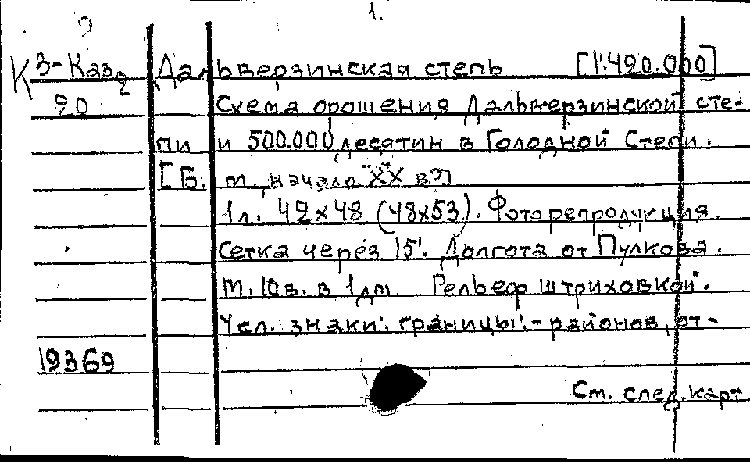 1.
К З-Каз2 Дальверзинская степь [1:420.000]
20 Схема орошения Дальверзинской сте-
пи и 500.000 десятин в Голодной Степи.
[Б. м., начало XX в?]
1л. 42х48 (48х53). Фоторепродукция.
Сетка через 15'. Долгота от Пулкова.
М. 10в. в 1дм Рельеф штриховкой.
Усл. знаки: границы:-районов, от-
19369
См. след. карт